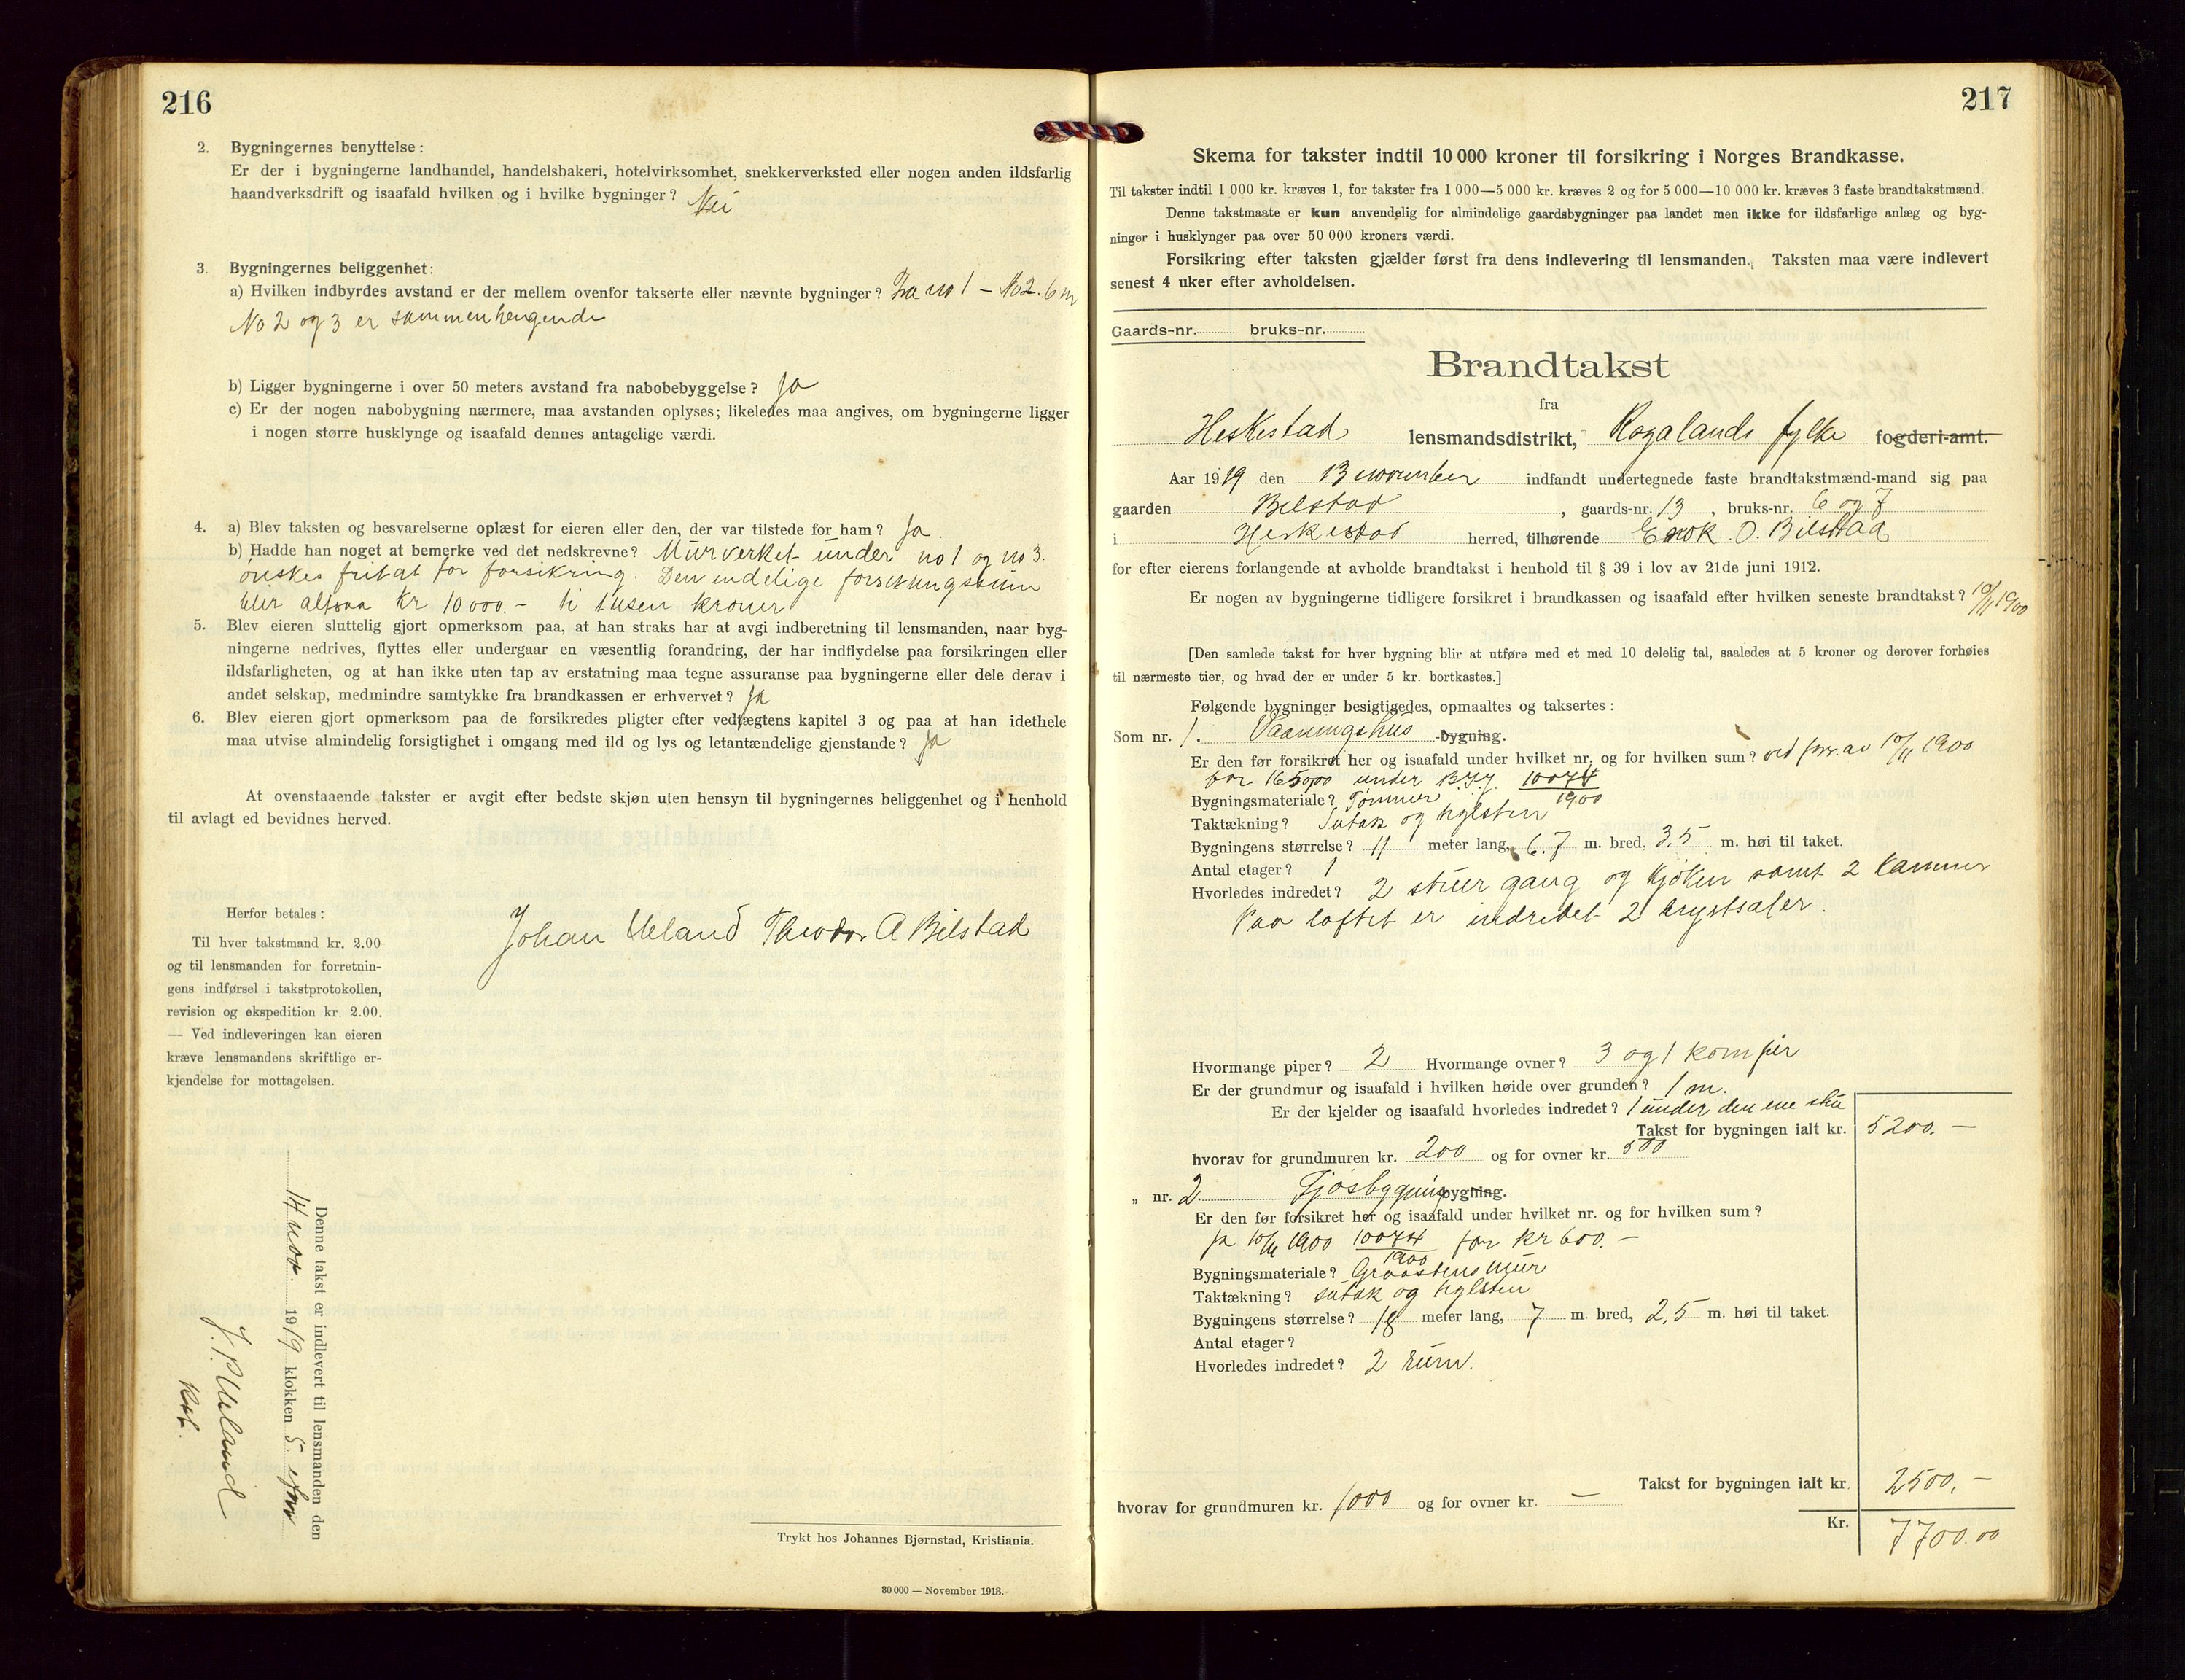 216
2. Bygningernes benyttelse:
Er der i bygningerne landhandel, handelsbakeri, hotelvirksomhet, snekkerverksted eller nogen anden ildsfarlig
haandverksdrift og isaafald hvilken og i hvilke bygninger? Nei
3. Bygningernes beliggenhet:
a) Hvilken indbyrdes avstand er der mellem ovenfor takserte eller nævnte bygninger? Fra no 1 – No 2. 6 m
No 2 og 3 er sammenhengende
b) Ligger bygningerne i over 50 meters avstand fra nabobebyggelse? Ja
c) Er der nogen nabobygning nærmere, maa avstanden oplyses; likeledes maa angives, om bygningerne ligger
i nogen større husklynge og isaafald dennes antagelige værdi.
4. a) Blev taksten og besvarelserne oplæst for eieren eller den, der var tilstede for ham? Ja.
b) Hadde han noget at bemerke ved det nedskrevne? Murverket under no 1 og no 3.
ønskes fritat for forsikring. Den endelige forsikringssum
blir altsaa Kr 10000.- ti tusen kroner
5. Blev eieren sluttelig gjort opmerksom paa, at han straks har at avgi indberetning til lensmanden, naar byg-
ningerne nedrives, flyttes eller undergaar en væsentlig forandring, der har indflydelse paa forsikringen eller
ildsfarligheten, og at han ikke uten tap av erstatning maa tegne assuranse paa bygningerne eller dele derav i
andet selskap, medmindre samtykke fra brandkassen er erhvervet? Ja
6. Blev eieren gjort opmerksom paa de forsikredes pligter efter vedtægtens kapitel 3 og paa at han idethele
maa utvise almindelig forsigtighet i omgang med ild og lys og letantændelige gjenstande? Ja
At ovenstaaende takster er avgit efter bedste skjøn uten hensyn til bygningernes beliggenhet og i henhold
til avlagt ed bevidnes herved.
Johan Ueland Theodor A Bilstad
Herfor betales:
Til hver takstmand kr. 2.00
og til lensmanden for forretnin-
gens indførsel i takstprotokollen,
revision og ekspedition kr. 2.00.
— Ved indleveringen kan eieren
kræve lensmandens skriftlige er-
kjendelse for mottagelsen.
Denne takst er indlevert til lensmanden den
14 nov. 1919 klokken 5. efm
J. P. Ueland
Trykt hos Johannes Bjørnstad, Kristiania.
30 000 — November 1913.
217
Skema for takster indtil 10 000 kroner til forsikring i Norges Brandkasse.
Til takster indtil 1 000 kr. kræves 1, for takster fra 1 000—5 000 kr. kræves 2 og for 5 000—10 000 kr. kræves 3 faste brandtakstmænd.
Denne takstmaate er kun anvendelig for almindelige gaardsbygninger paa landet men ikke for ildsfarlige anlæg og byg-
ninger i husklynger paa over 50 000 kroners værdi.
Forsikring efter taksten gjælder først fra dens indlevering til lensmanden. Taksten maa være indlevert
senest 4 uker efter avholdelsen.
Gaards-nr. bruks-nr.
Brandtakst
fra
Heskestad lensmandsdistrikt, Rogalands fylke fogderi-amt.
Aar 1919 den 13 november indfandt undertegnede faste brandtakstmænd-mand sig paa
gaarden Bilstad, gaards-nr. 13, bruks-nr. 6 og 7
i Heskestad herred, tilhørende Enok O. Bilstad
for efter eierens forlangende at avholde brandtakst i henhold til § 39 i lov av 21de juni 1912.
Er nogen av bygningerne tidligere forsikret i brandkassen og isaafald efter hvilken seneste brandtakst? 10/11 1900
[Den samlede takst for hver bygning blir at utføre med et med 10 delelig tal, saaledes at 5 kroner og derover forhøies
til nærmeste tier, og hvad der er under 5 kr. bortkastes.]
Følgende bygninger besigtigedes, opmaaltes og taksertes:
Som nr. 1. Vaaningshus bygning.
Er den før forsikret her og isaafald under hvilket nr. og for hvilken sum? ved forr. av 10/11 1900
for under 10074/1900
Bygningsmateriale? Tømmer
Taktækning? Sutak og hylsten
Bygningens størrelse? 11 meter lang, 6.7 m. bred, 3,5 m. høi til taket.
Antal etager? 1
Hvorledes indredet? 2 stuer gang og kjøken samt 2 kammer
Paa loftet er indredet 2 brystsaler.
Hvormange piper? 2 Hvormange ovner? 3 og 1 komfur
Er der grundmur og isaafald i hvilken høide over grunden? 1 m.
Er der kjelder og isaafald hvorledes indredet? 1 under den ene stu
Takst for bygningen ialt kr. 5200.—
hvorav for grundmuren kr. 200 og for ovner kr. 500
„ nr. 2 Fjøsbygning bygning.
Er den før forsikret her og isaafald under hvilket nr. og for hvilken sum?
Ja 10/11 1900 10074/1900 for Kr 600.—
Bygningsmateriale? Graastens mur
Taktækning? sutak og hylsten
Bygningens størrelse? 18 meter lang, 7 m. bred, 2,5 m. høi til taket.
Antal etager?
Hvorledes indredet? 2 rum.
Takst for bygningen ialt kr. 2500.—
hvorav for grundmuren kr. 1000 og for ovner kr. —
Kr. 7700.00